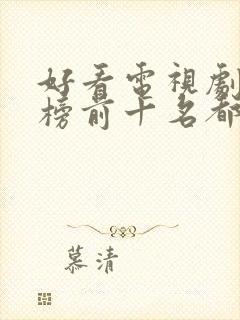 好看電視劇
榜前十名都
慕清